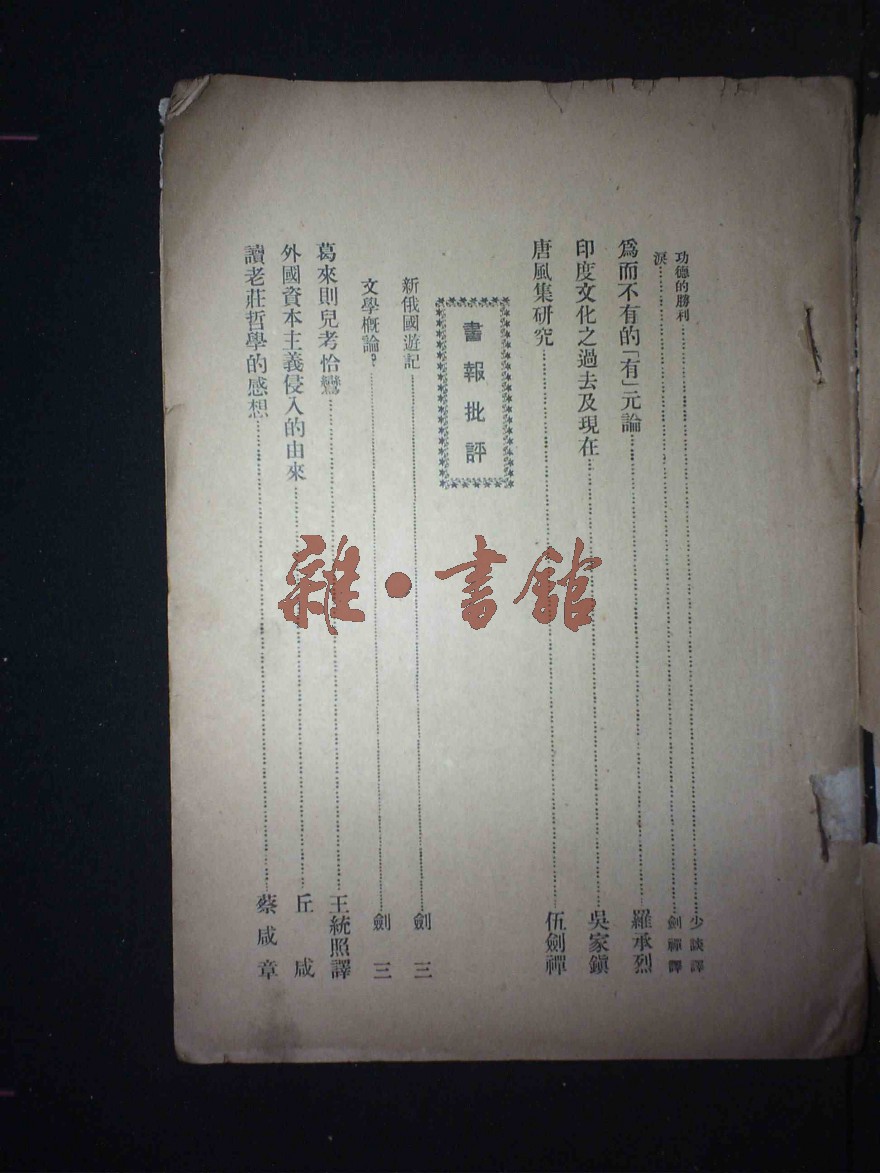 功德的勝利……少談譯
淚……劍禪譯
爲而不有的「有」元論……羅承烈
印度文化之過去及現在……吳家鎭
唐風集硏究……伍劍禪
書報批評
新俄國遊記……劍三
文學槪論？……劍三
葛來則兒考恰鸞……王統照譯
外國資本主義侵入的由來……丘咸
讀老莊哲學的感想……蔡咸章
雜·書館